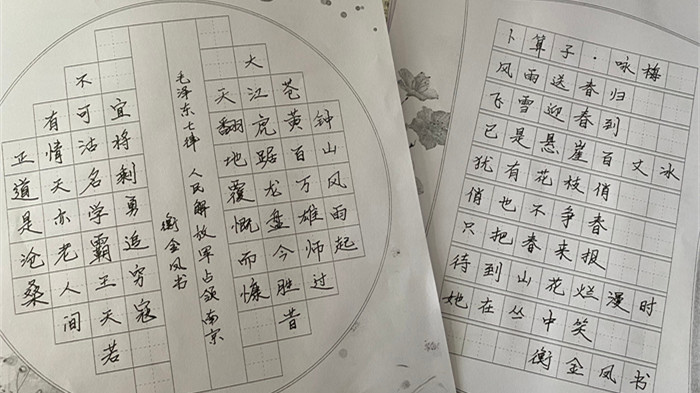 钟山风雨起
苍黄百万雄师过
大江虎踞龙盘今胜昔
天翻地覆慨而慷
毛泽东七律 人民解放军占领南京
衡金凤书
宜将剩勇追穷寇
不可沽名学霸王天若
有情天亦老人间
正道是沧桑
卜算子·咏梅
风雨送春归
飞雪迎春到
已是悬崖百丈冰
犹有花枝俏
俏也不争春
只把春来报
待到山花烂漫时
她在丛中笑
衡金凤书